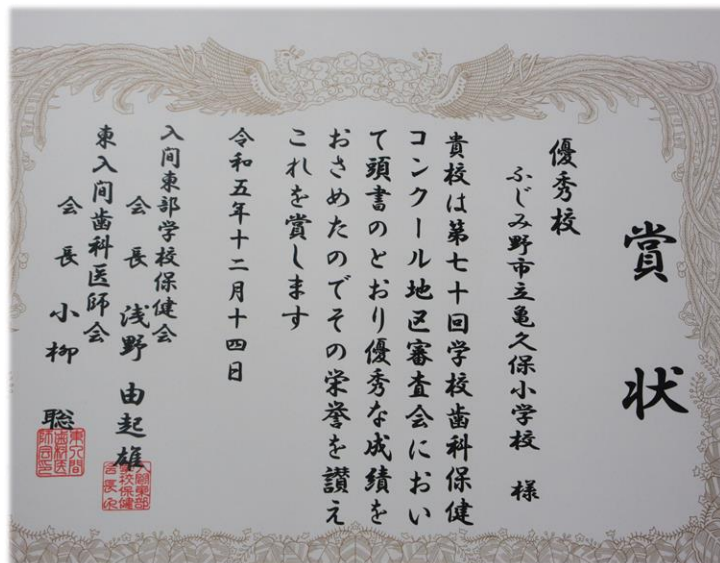 賞状
優秀校
ふじみ野市立亀久保小学校 様
貴校は第七十回学校歯科保健
コンクール地区審査会におい
て頭書のとおり優秀な成績を
おさめたのでその栄誉を讃え
これを賞します
令和五年十二月十四日
入间東部学校保健会
会長 浅野 由起雄
東入间歯科医師会
会長 小柳 聡